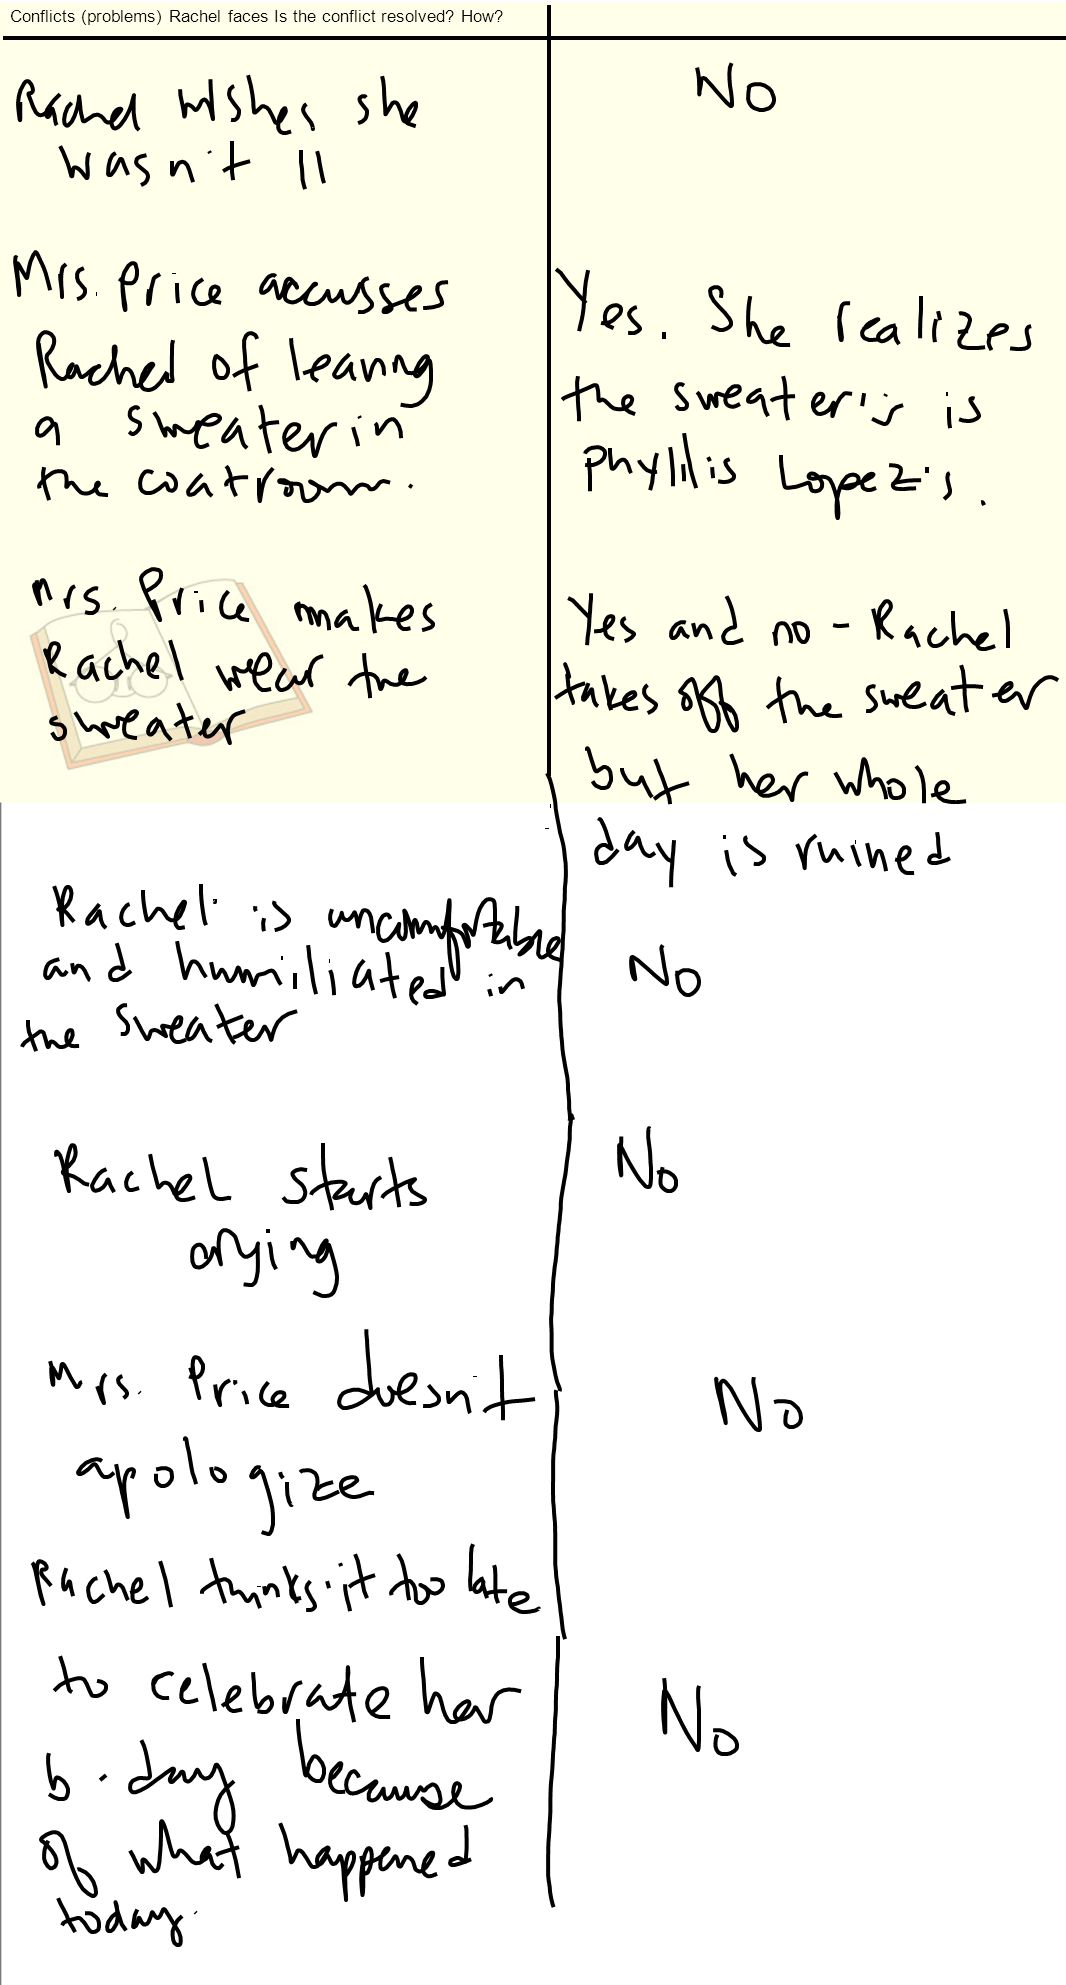 Conflicts (problems) Rachel faces Is the conflict resolved? How?
Rachel wishes she
wasn't 11
No
Mrs. Price accusses
Rachel of leaving
a sweater in
the coatroom.
Yes. She realizes
the sweater's is
Phyllis Lopez's.
Mrs. Price makes
Rachel wear the
sweater
Yes and no - Rachel
takes off the sweater
but her whole
day is ruined
Rachel is uncomfortable
and humiliated in
the sweater
No
Rachel starts
crying
No
Mrs. Price doesn't
apologize
No
Rachel thinks it too late
to celebrate her
b-day because
of what happened
today.
No